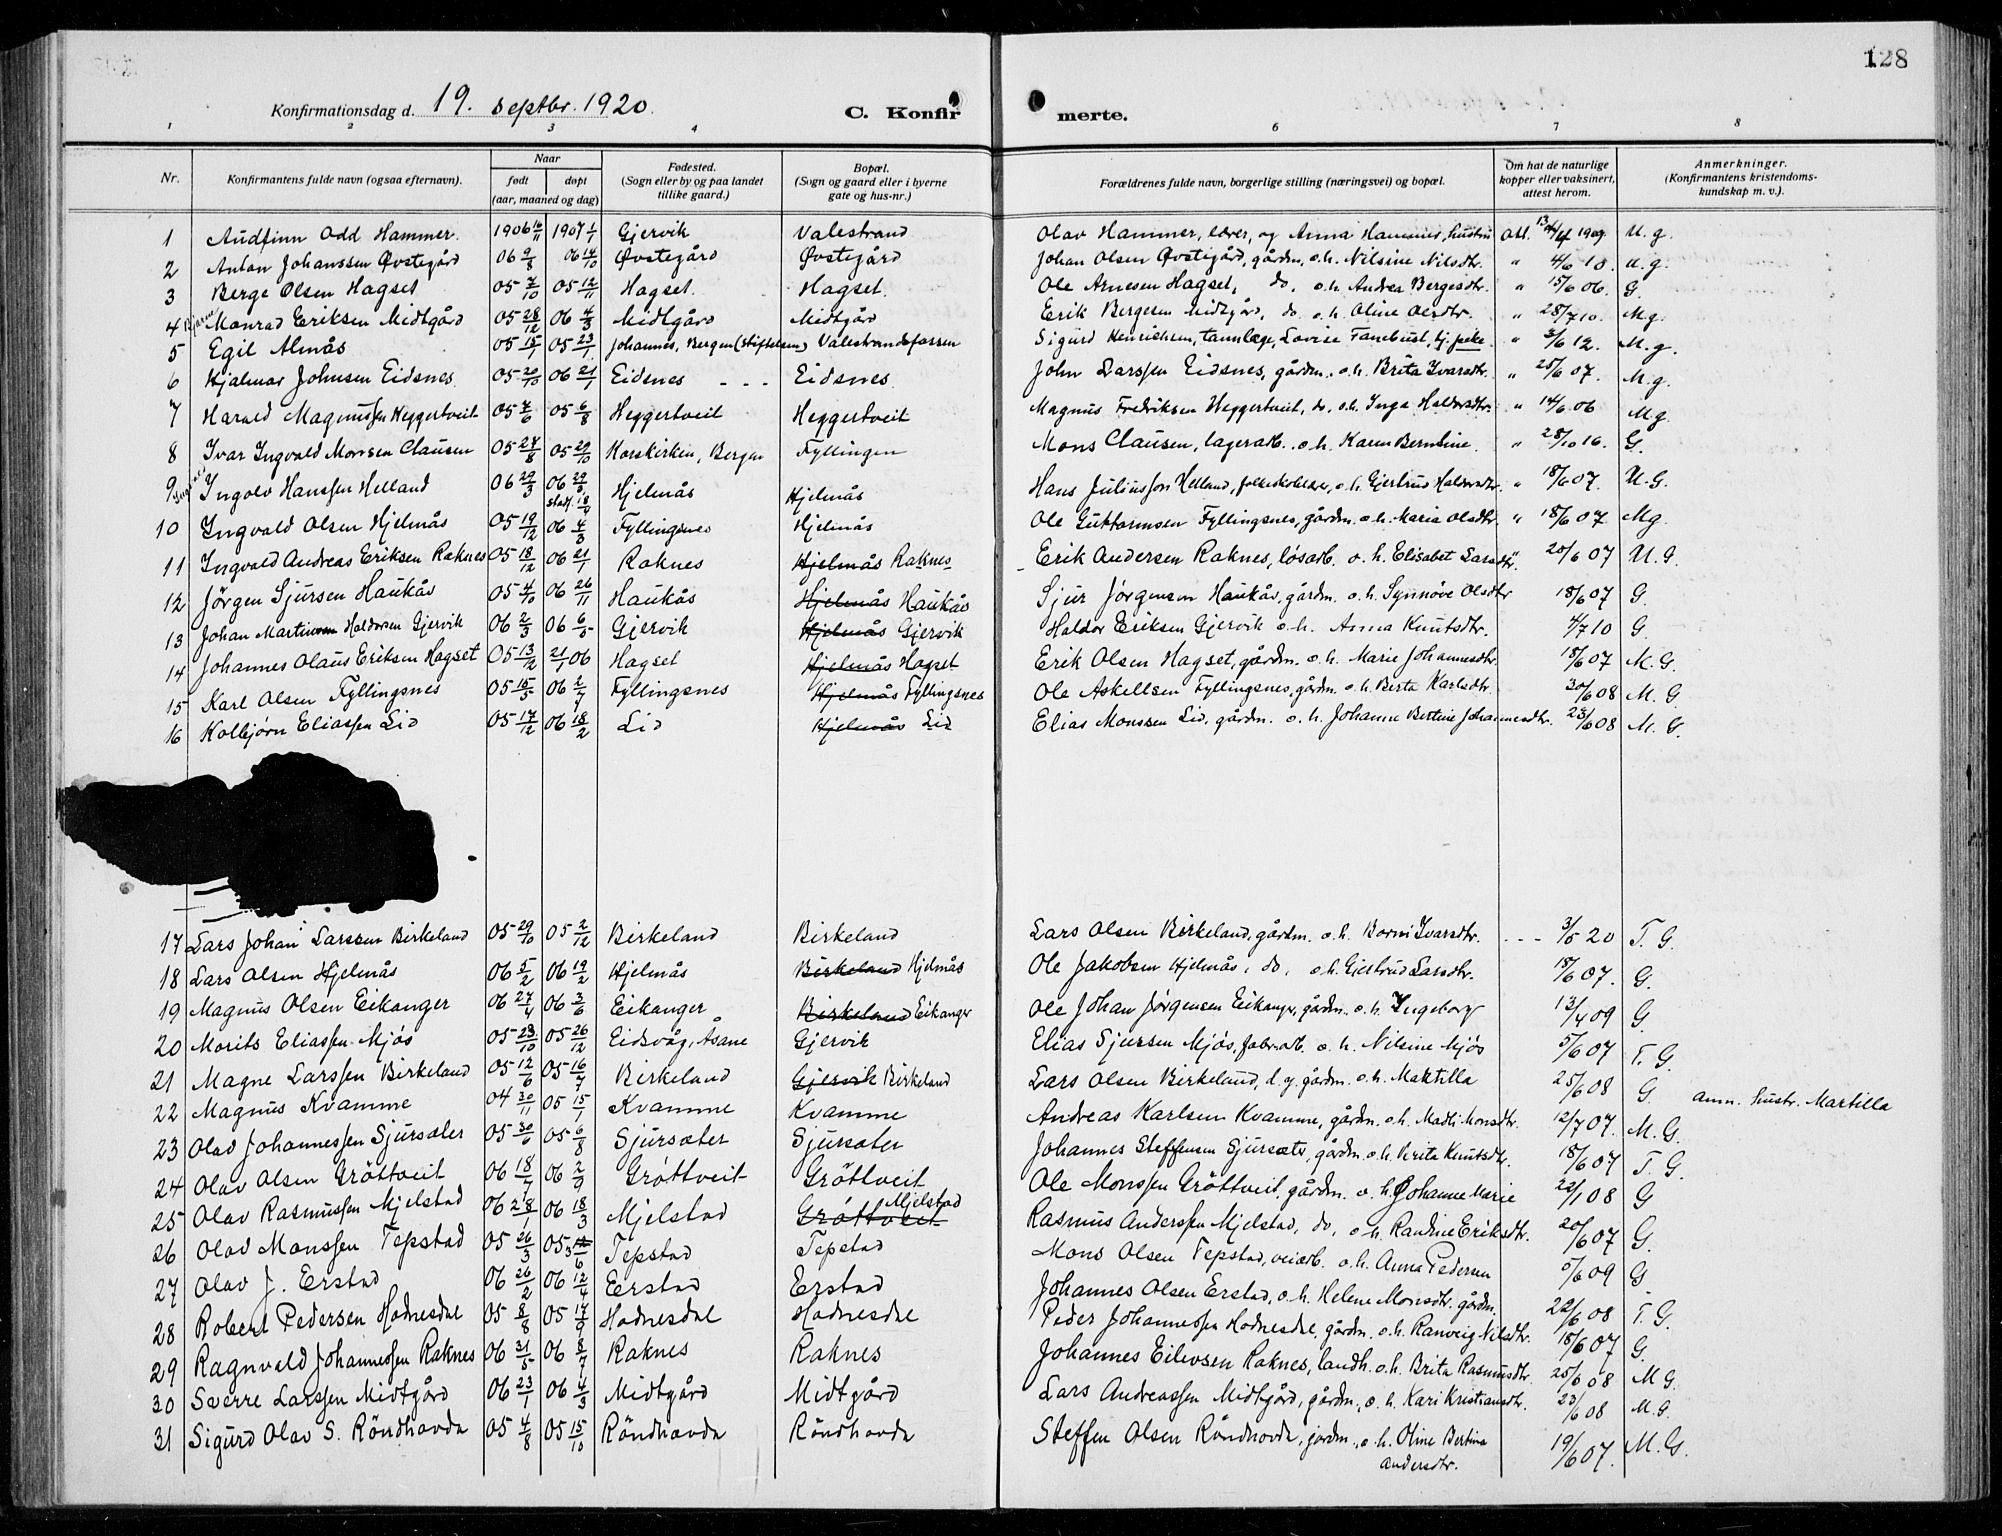 128
Konfirmationsdag d. 19. septbr. 1920. C. Konfirmerte.
1 2 3 4 6 7 8
Nr. Konfirmantens fulde navn (ogsaa efternavn). Naar født døpt (aar, maaned og dag) Fødested. (Sogn eller by og paa landet tillike gaard.) Bopæl. (Sogn og gaard eller i byerne gate og hus-nr.) Forældrenes fulde navn, borgerlige stilling (næringsvei) og bopæl. Om hat de naturlige kopper eller vaksinert, attest herom. Anmerkninger. (Konfirmantens kristendoms-kundskap m. v.).
1 Audfinn Odd Hammer. 1906 16/11 1907 1/1 Gjervik Valestrand Olav Hammer, lærer, og Anna Hammer, hustru Att. 1909 M.g.
2 Anton Johanssen Øvstegård 06 9/8 06 14/10 Øvstegård Øvstegård Johan Olsen Øvstegård, gårdm. o.h. Nilsine Nilsdtr. " 4/6 10. M.g.
3 Berge Olsen Hagset 05 7/10 05 12/11 Hagset. Hagset. Ole Arnesen Hagset, do, o.h. Andrea Bergesdtr. " 15/6 06. G.
4 Bjarne Monrad Eriksen Midtgård 05 28/12 06 4/3 Midtgård Midtgård Erik Bergesen Midtgård, do. o.h. Oline Olsdtr. " 28/7 10. Mg.
5 Egil Almås 05 15/1 05 23/1 Johannes, Bergen (Stiftelsen) Valestrandsfossen Sigurd Henriksen, tannlæge, Lovise Fanebust, tj. peke. " 3/6 12. M.g.
6 Hjalmar Johnsen Eidsnes 05 20/10 06 21/1 Eidsnes - - - Eidsnes John Larssen Eidsnes, gårdm. o.h. Brita Ivarsdtr. " 25/6 07. M.g.
7 Harald Magnussen Heggertveit 05 4/6 05 6/8 Heggertveit Heggertveit Magnus Fredriksen Heggertveit, do, o.h. Inga Haldorsdtr. " 14/6 06 Mg.
8 Ivar Ingvald Monsen Clausen 05 27/8 05 29/10 Korskirken, Bergen Fyllingen Mons Clausen, lagerarb. o.h. Karen Berntine. " 28/10 16. G.
9 Ingolv Hanssen Helland 06 29/3 06 29/3 stadf. 18/4 Hjelmås Hjelmås Hans Juliussen Helland, folkeskolelær, o.h. Gjertrud Haldorsdtr. " 18/6 07. M.G.
10 Ingvald Olsen Hjelmås 05 19/12 06 4/3 Fyllingsnes Hjelmås Ole Guttormsen Fyllingsnes, gårdm. o.h. Maria Olsdtr. " 18/6 07 Mg.
11 Ingvald Andreas Eriksen Raknes 05 18/12 06 21/1 Raknes Hjelmås Raknes Erik Andersen Raknes, løsarb. o.h. Elisabet Larsdtr. 20/6 07 M.G.
12 Jörgen Sjursen Haukås 05 4/10 06 26/11 Haukås Hjelmås Haukås Sjur Jörgensen Haukås, gårdm. o.h. Synnöve Olsdtr 18/6 07 G.
13 Johan Martinsen Haldorsen Gjervik 06 2/3 06 6/5 Gjervik Hjelmås Gjervik Haldor Eriksen Gjervik o.h. Anna Knutsdtr. 4/7 10 G.
14 Johannes Olaus Eriksen Hagset 05 13/12 21/1 06 Hagset Hjelmås Hagset Erik Olsen Hagset, gårdm. o.h. Marie Johannesdtr. 18/6 07 M.G.
15 Karl Olsen Fyllingsnes 05 15/5 06 2/7 Fyllingsnes Hjelmås Fyllingsnes Ole Askellsen Fyllingsnes, gårdm. o.h. Berta Karlsdtr. 30/6 08 M.G.
16 Kolbjørn Eliassen Lid 05 17/12 06 18/2 Lid Hjelmås Lid Elias Monssen Lid, gårdm. o.h. Johanne Bertine Johannesdtr. 23/6 08 M.G.
17 Lars Johan Larssen Birkeland 05 29/10 05 2/12 Birkeland Birkeland Lars Olsen Birkeland, gårdm. o.h. Borni Ivarsdtr. - - - 3/5 20 T.G.
18 Lars Olsen Hjelmås 06 5/2 06 19/2 Hjelmås Birkeland Hjelmås Ole Jakobsen Hjelmås, do, o.h. Gjertrud Larsdtr. 18/6 07. G.
19 Magnus Olsen Eikanger 06 27/4 06 3/6 Eikanger Birkeland Eikanger Ole Johan Jørgensen Eikanger, gårdm. o.h. Ingeborg 13/4 09 G.
20 Morits Eliassen Mjös 05 23/10 05 26/12 Eidsvåg, Åsane Gjervik Elias Sjursen Mjös, fabr.arb. o.h. Nilsine Mjös 5/6 07 T.G.
21 Magne Larssen Birkeland 05 12/6 05 16/7 Birkeland Gjervik Birkeland Lars Olsen Birkeland, d.y. gårdm. o.h. Maktilla 25/6 08 G. anm. hustr. Martilla
22 Magnus Kvamme 04 30/11 05 15/1 Kvamme Kvamme Andreas Karlsen Kvamme, gårdm. o.h. Madli Monsdtr. 12/7 07. M.G.
23 Olav Johannessen Sjursæter 05 30/6 05 6/8 Sjursæter Sjursæter Johannes Steffensen Sjursæter, gårdm. o.h. Brita Knutsdtr. 18/6 07 T.G.
24 Olav Olsen Gröttveit 06 18/7 06 2/9 Gröttveit Gröttveit Ole Monssen Gröttveit, gårdm. o.h. Johanne Marie 22/1 08 G
25 Olav Rasmussen Mjelstad 06 28/1 06 18/3 Mjelstad Gröttveit Mjelstad Rasmus Anderssen Mjelstad, do, o.h. Randine Eriksdtr. 20/6 07 G.
26 Olav Monssen Tepstad 05 26/3 05 Tepstad Tepstad Mons Olsen Tepstad, veiarb. o.h. Anna Pedersen 5/6 09 G
27 Olav J. Erstad 06 26/2 06 12/4 Erstad Erstad Johannes Olsen Erstad, o.h. Helene Monsdtr. gårdm. 22/6 08 T.G.
28 Robert Pedersen Hodnesdal 05 8/8 05 17/9 Hodnesdal Hodnesdal Peder Johannessen Hodnesdal, gårdm. o.h. Ranveig Nilsdtr. 18/6 07 G.
29 Ragnvald Johannessen Raknes 06 31/5 06 8/7 Raknes Raknes Johannes Eilevsen Raknes, landh. o.h. Brita Rasmusdtr. 25/6 08 M G.
30 Sverre Larssen Midtgård 06 23/1 06 4/3 Midtgård Midtgård Lars Andreassen Midtgård, gårdm. o.h. Kari Kristiansdtr. 23/6 08 M.G.
31 Sigurd Olav S. Röndhovda 05 4/8 05 15/10 Röndhovda Röndhovda Steffen Olsen Röndhovda, gårdm., o.h. Oline Bertina Andersdtr. 19/6 07. M.G.